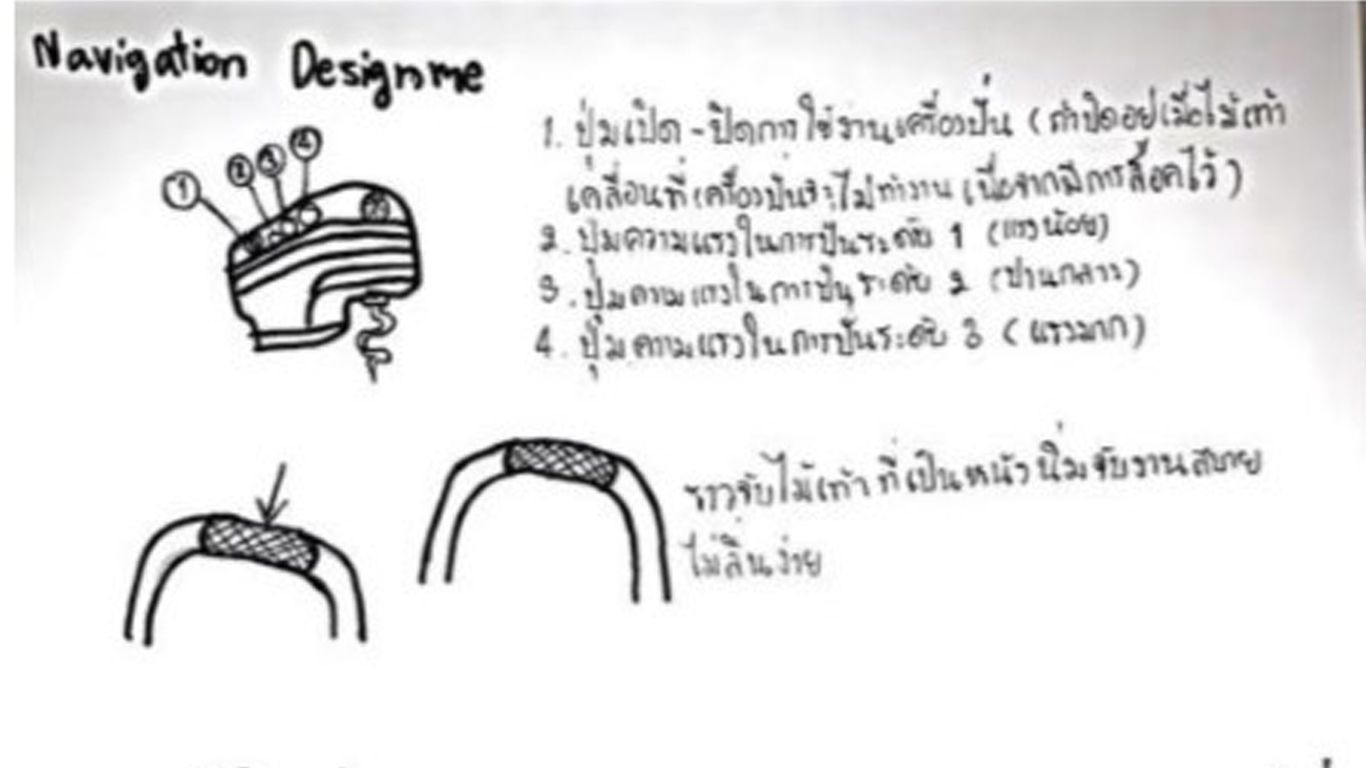 Navigation Designme
1 2 3 4
1. ปุ่มเปิด-ปิดการใช้งานเครื่องปั่น (ถ้าปิดอยู่เมื่อไม้เท้า
เคลื่อนที่เครื่องปั่นจะไม่ทำงานเนื่องจากมีการล็อคไว้)
2. ปุ่มความแรงในการปั่นระดับ 1 (แรงน้อย)
3. ปุ่มความแรงในการปั่นระดับ 2 (ปานกลาง)
4. ปุ่มความแรงในการปั่นระดับ 3 (แรงมาก)
ราวจับไม้เท้าที่เป็นหนังนิ่มจับงานสบาย
ไม่ลื่นง่าย